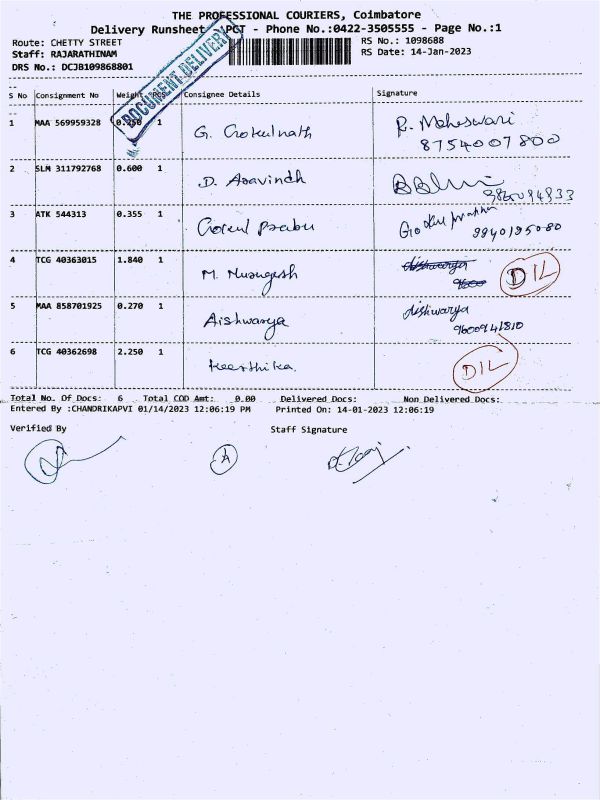 THE PROFESSIONAL COURIERS, Coimbatore
Delivery Runsheet - Phone No.:0422-3505555 - Page No.:1
Route: CHETTY STREET
RS No.: 1098688
Staff: RAJARATHINAM
RS Date: 14-Jan-2023
DRS No.: DCJB109868801
DOCUMENT DELIVERY
S No Consignment No Weight PCS Consignee Details Signature
1 MAA 569959328 1 G. Gokulnath R. Maheswari
8754007800
2 SLM 311792768 0.600 1 D. Aravindh
3 ATK 544313 0.355 1 Gokul Prabu
9940195080
4 TCG 40363015 1.840 1 M. Murugesh Aishwarya DIL
9600
5 MAA 858701925 0.270 1 Aishwarya Aishwarya
9600941810
6 TCG 40362698 2.250 1 Keerthika. DIL
Total No. Of Docs: 6 Total COD Amt: 0.00 Delivered Docs: Non Delivered Docs:
Entered By :CHANDRIKAPVI 01/14/2023 12:06:19 PM Printed On: 14-01-2023 12:06:19
Verified By Staff Signature
A